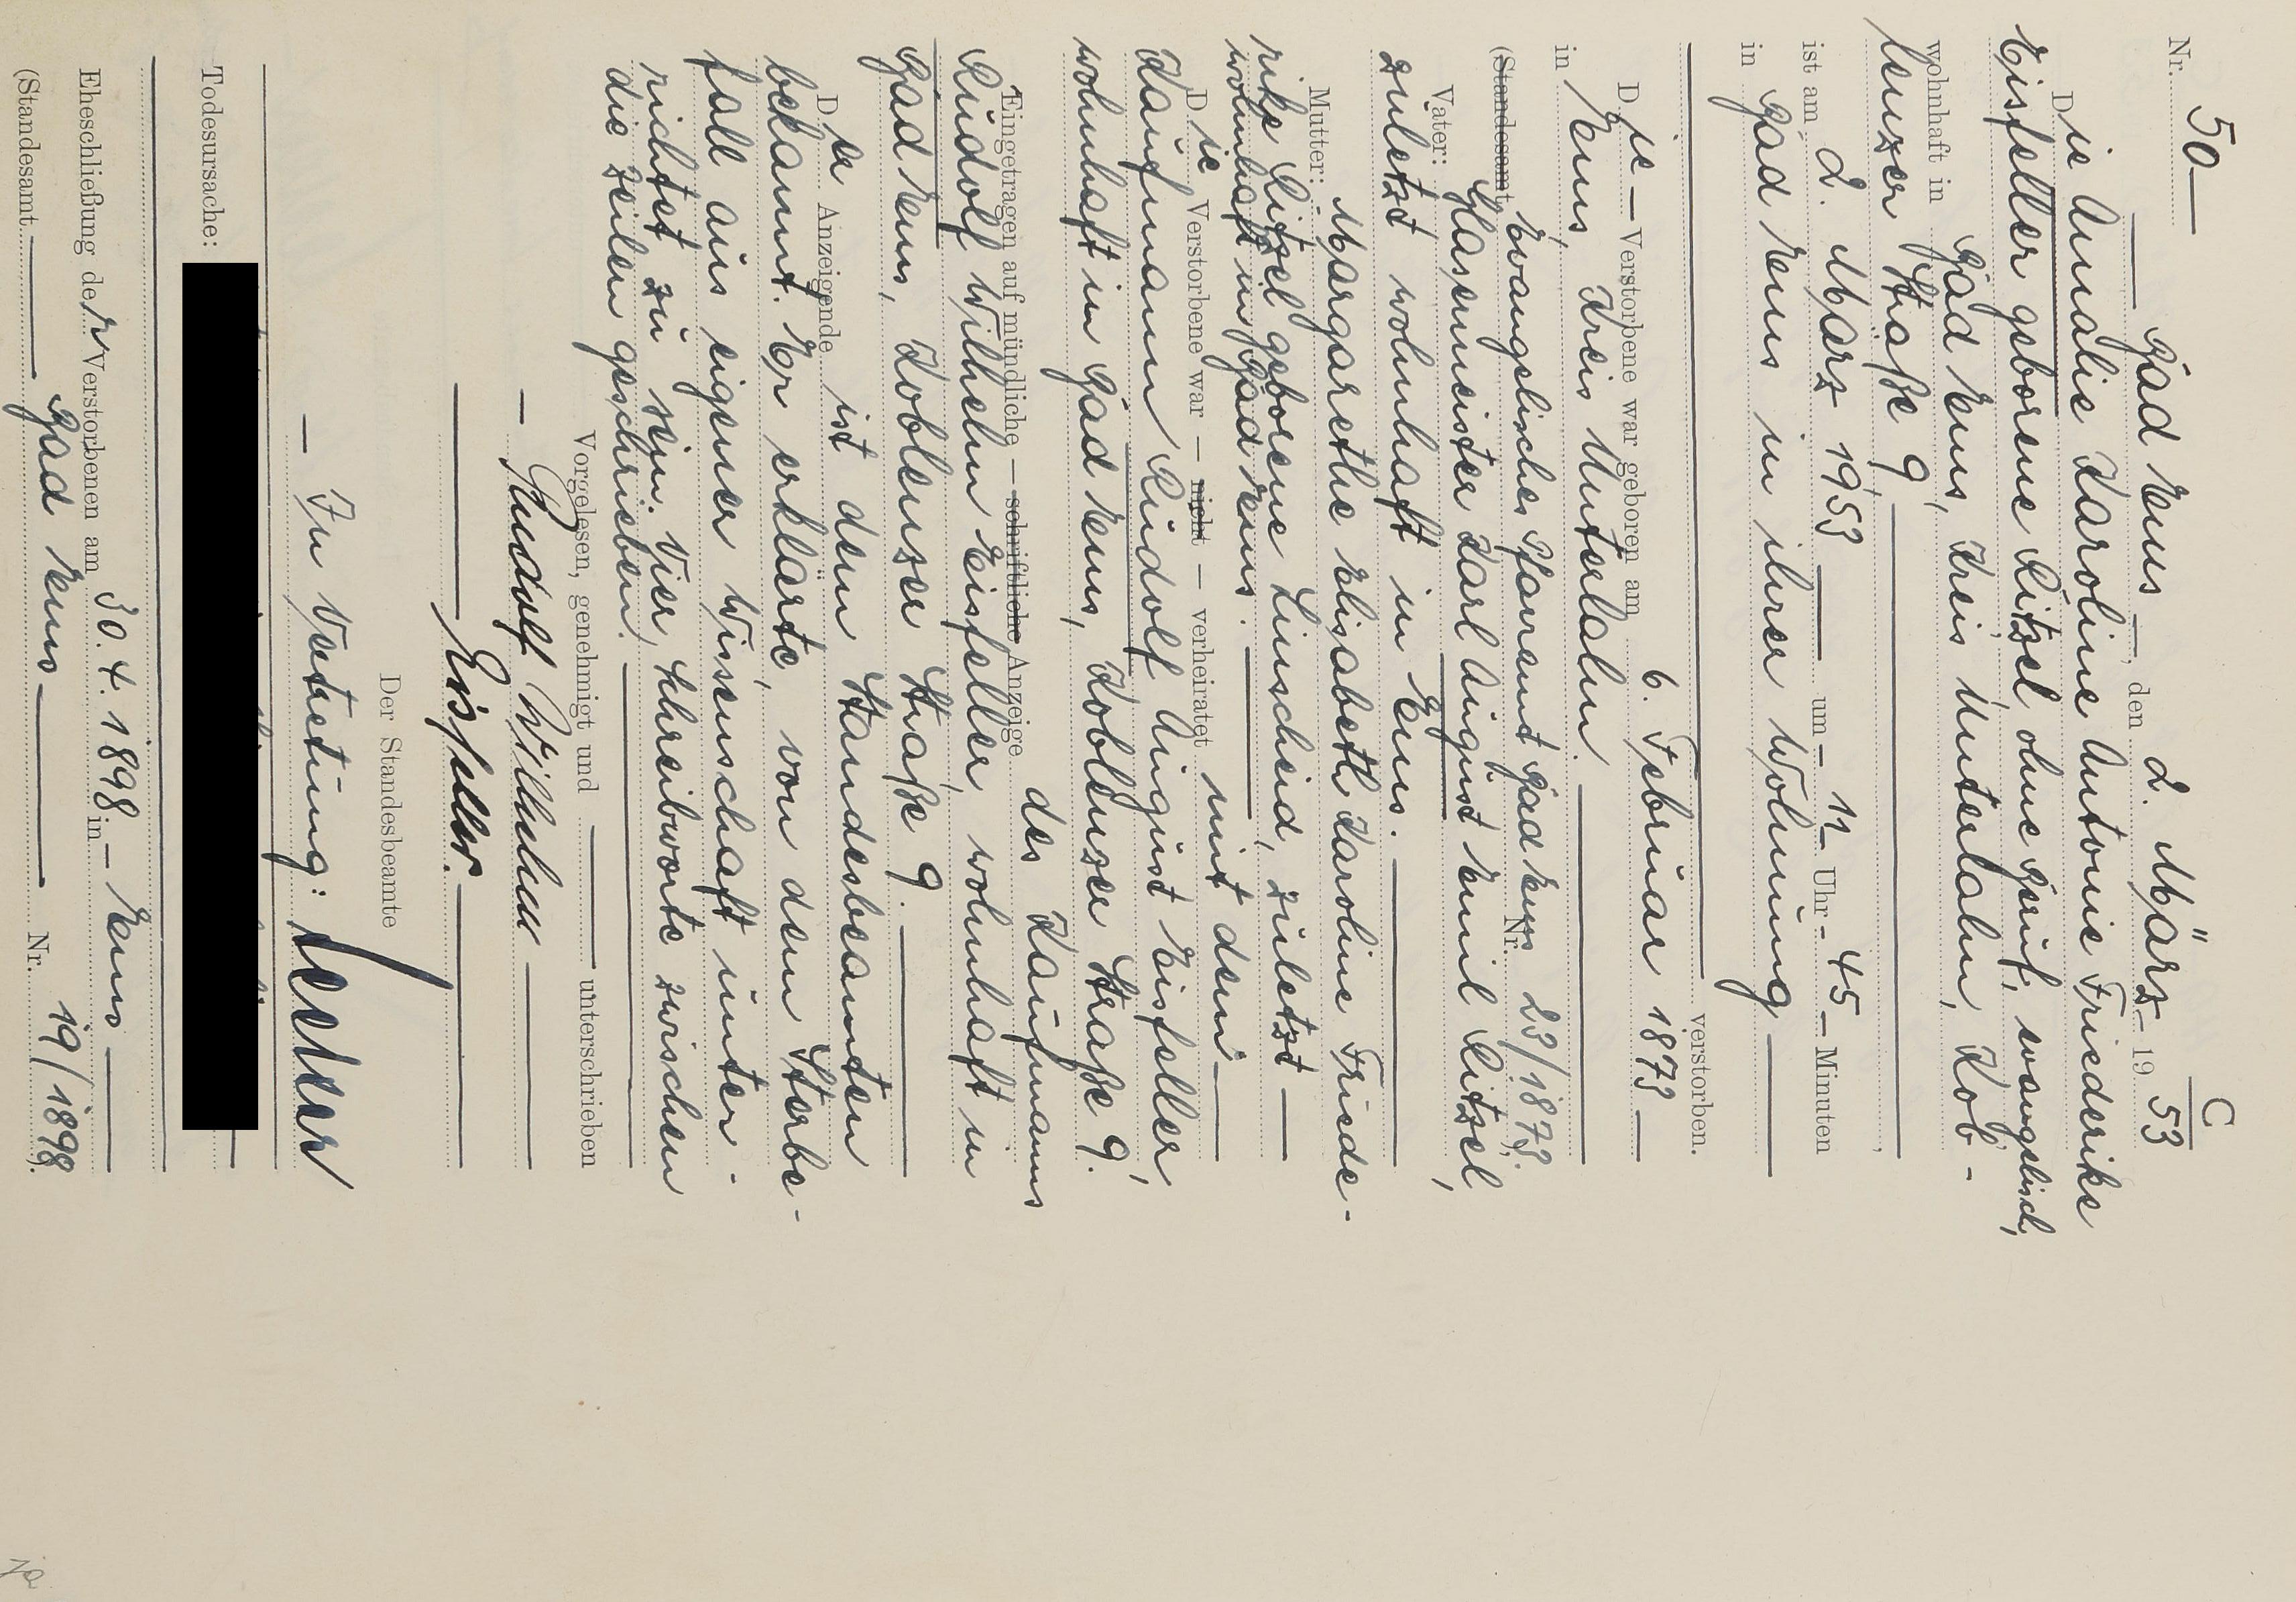 C
Nr. 50
Bad Ems, den 2. März 19 53
Die Amalie Karoline Antonie Friederike
Eisfeller geborene Ritzel ohne Beruf, evangelisch,
wohnhaft in Bad Ems, Kreis Unterlahn, Kob-
lenzer Straße 9,
ist am 2. März 1953 um 11 Uhr 45 Minuten
in Bad Ems in ihrer Wohnung
verstorben.
Die Verstorbene war geboren am 6. Februar 1873
in Ems, Kreis Unterlahn.
evangelisches Pfarramt Bad Ems
(Standesamt Nr. 23/1873.
Vater: Glasermeister Karl August Emil Ritzel,
zuletzt wohnhaft in Ems.
Mutter: Margarethe Elisabeth Karoline Friede-
rike Ritzel geborene Linscheid, zuletzt
wohnhaft in Bad Ems.
Die Verstorbene war — nicht — verheiratet mit dem
Kaufmann Rudolf August Eisfeller,
wohnhaft in Bad Ems, Koblenzer Straße 9.
Eingetragen auf mündliche — schriftliche Anzeige des Kaufmanns
Rudolf Wilhelm Eisfeller, wohnhaft in
Bad Ems, Koblenzer Straße 9.
Der Anzeigende ist dem Standesbeamten
bekannt. Er erklärte, von dem Sterbe-
fall aus eigener Wissenschaft unter-
richtet zu sein. Vier Schreibworte zwischen
die Zeilen geschrieben.
Vorgelesen, genehmigt und unterschrieben
Rudolf Wilhelm
Eisfeller.
Der Standesbeamte
In Vertretung:
Todesursache:
Eheschließung der Verstorbenen am 30.4.1898 in Ems
(Standesamt Bad Ems Nr. 19/1898).